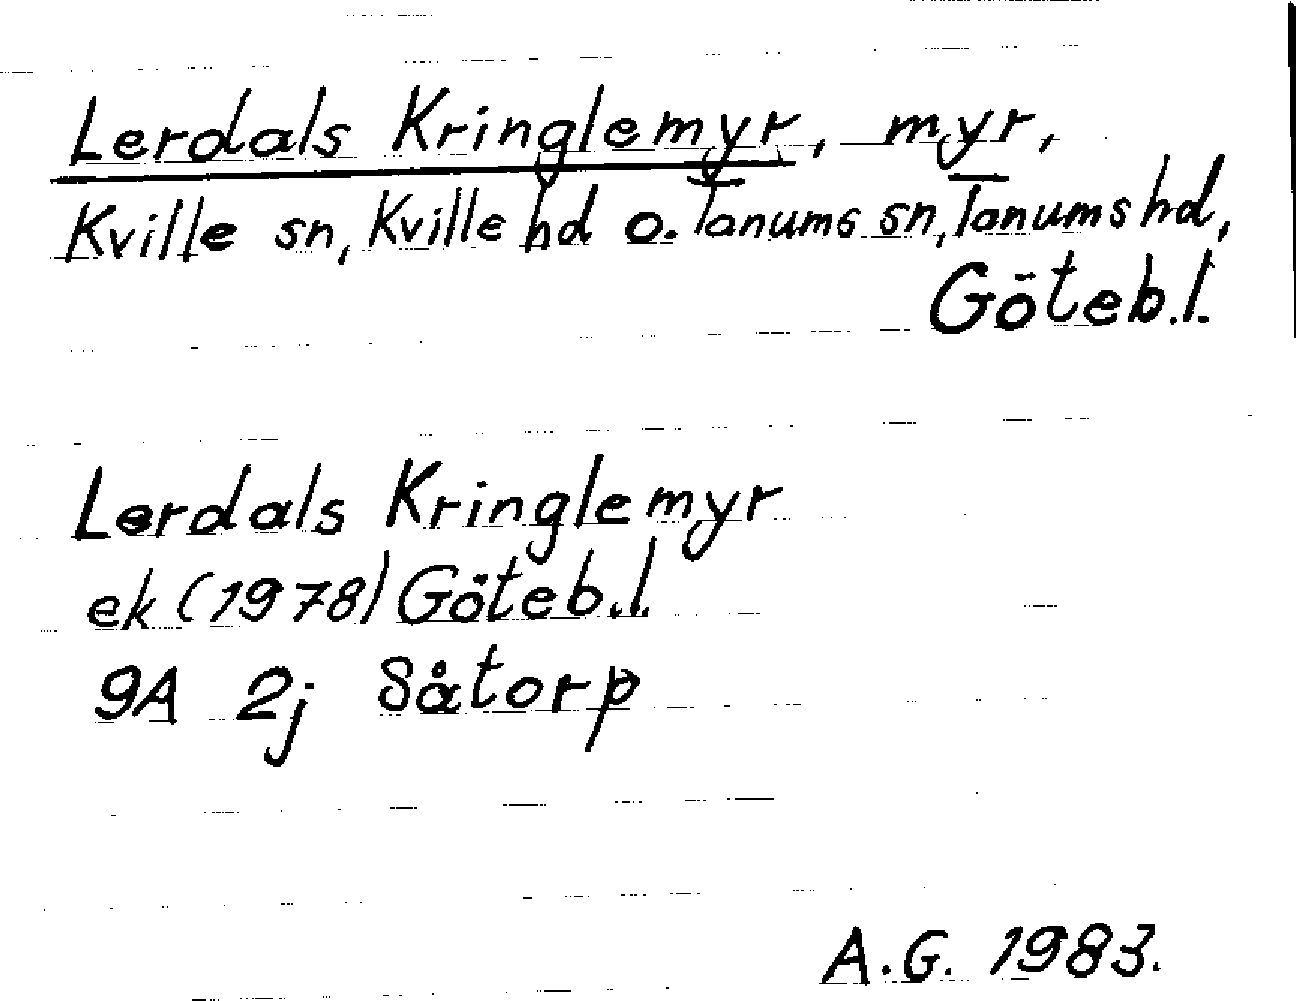 Lerdals Kringlemyr, myr,
Kville sn, Kville hd o. Tanums sn, Tanums hd,
Göteb.l.
Lerdals Kringlemyr
ek (1978) Göteb.l.
9A 2j Såtorp
A.G. 1983.